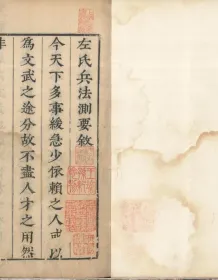 左氏兵法測要敘
今天下多事緩急少依賴之人或以
為文武之途分故不盡人才之用然